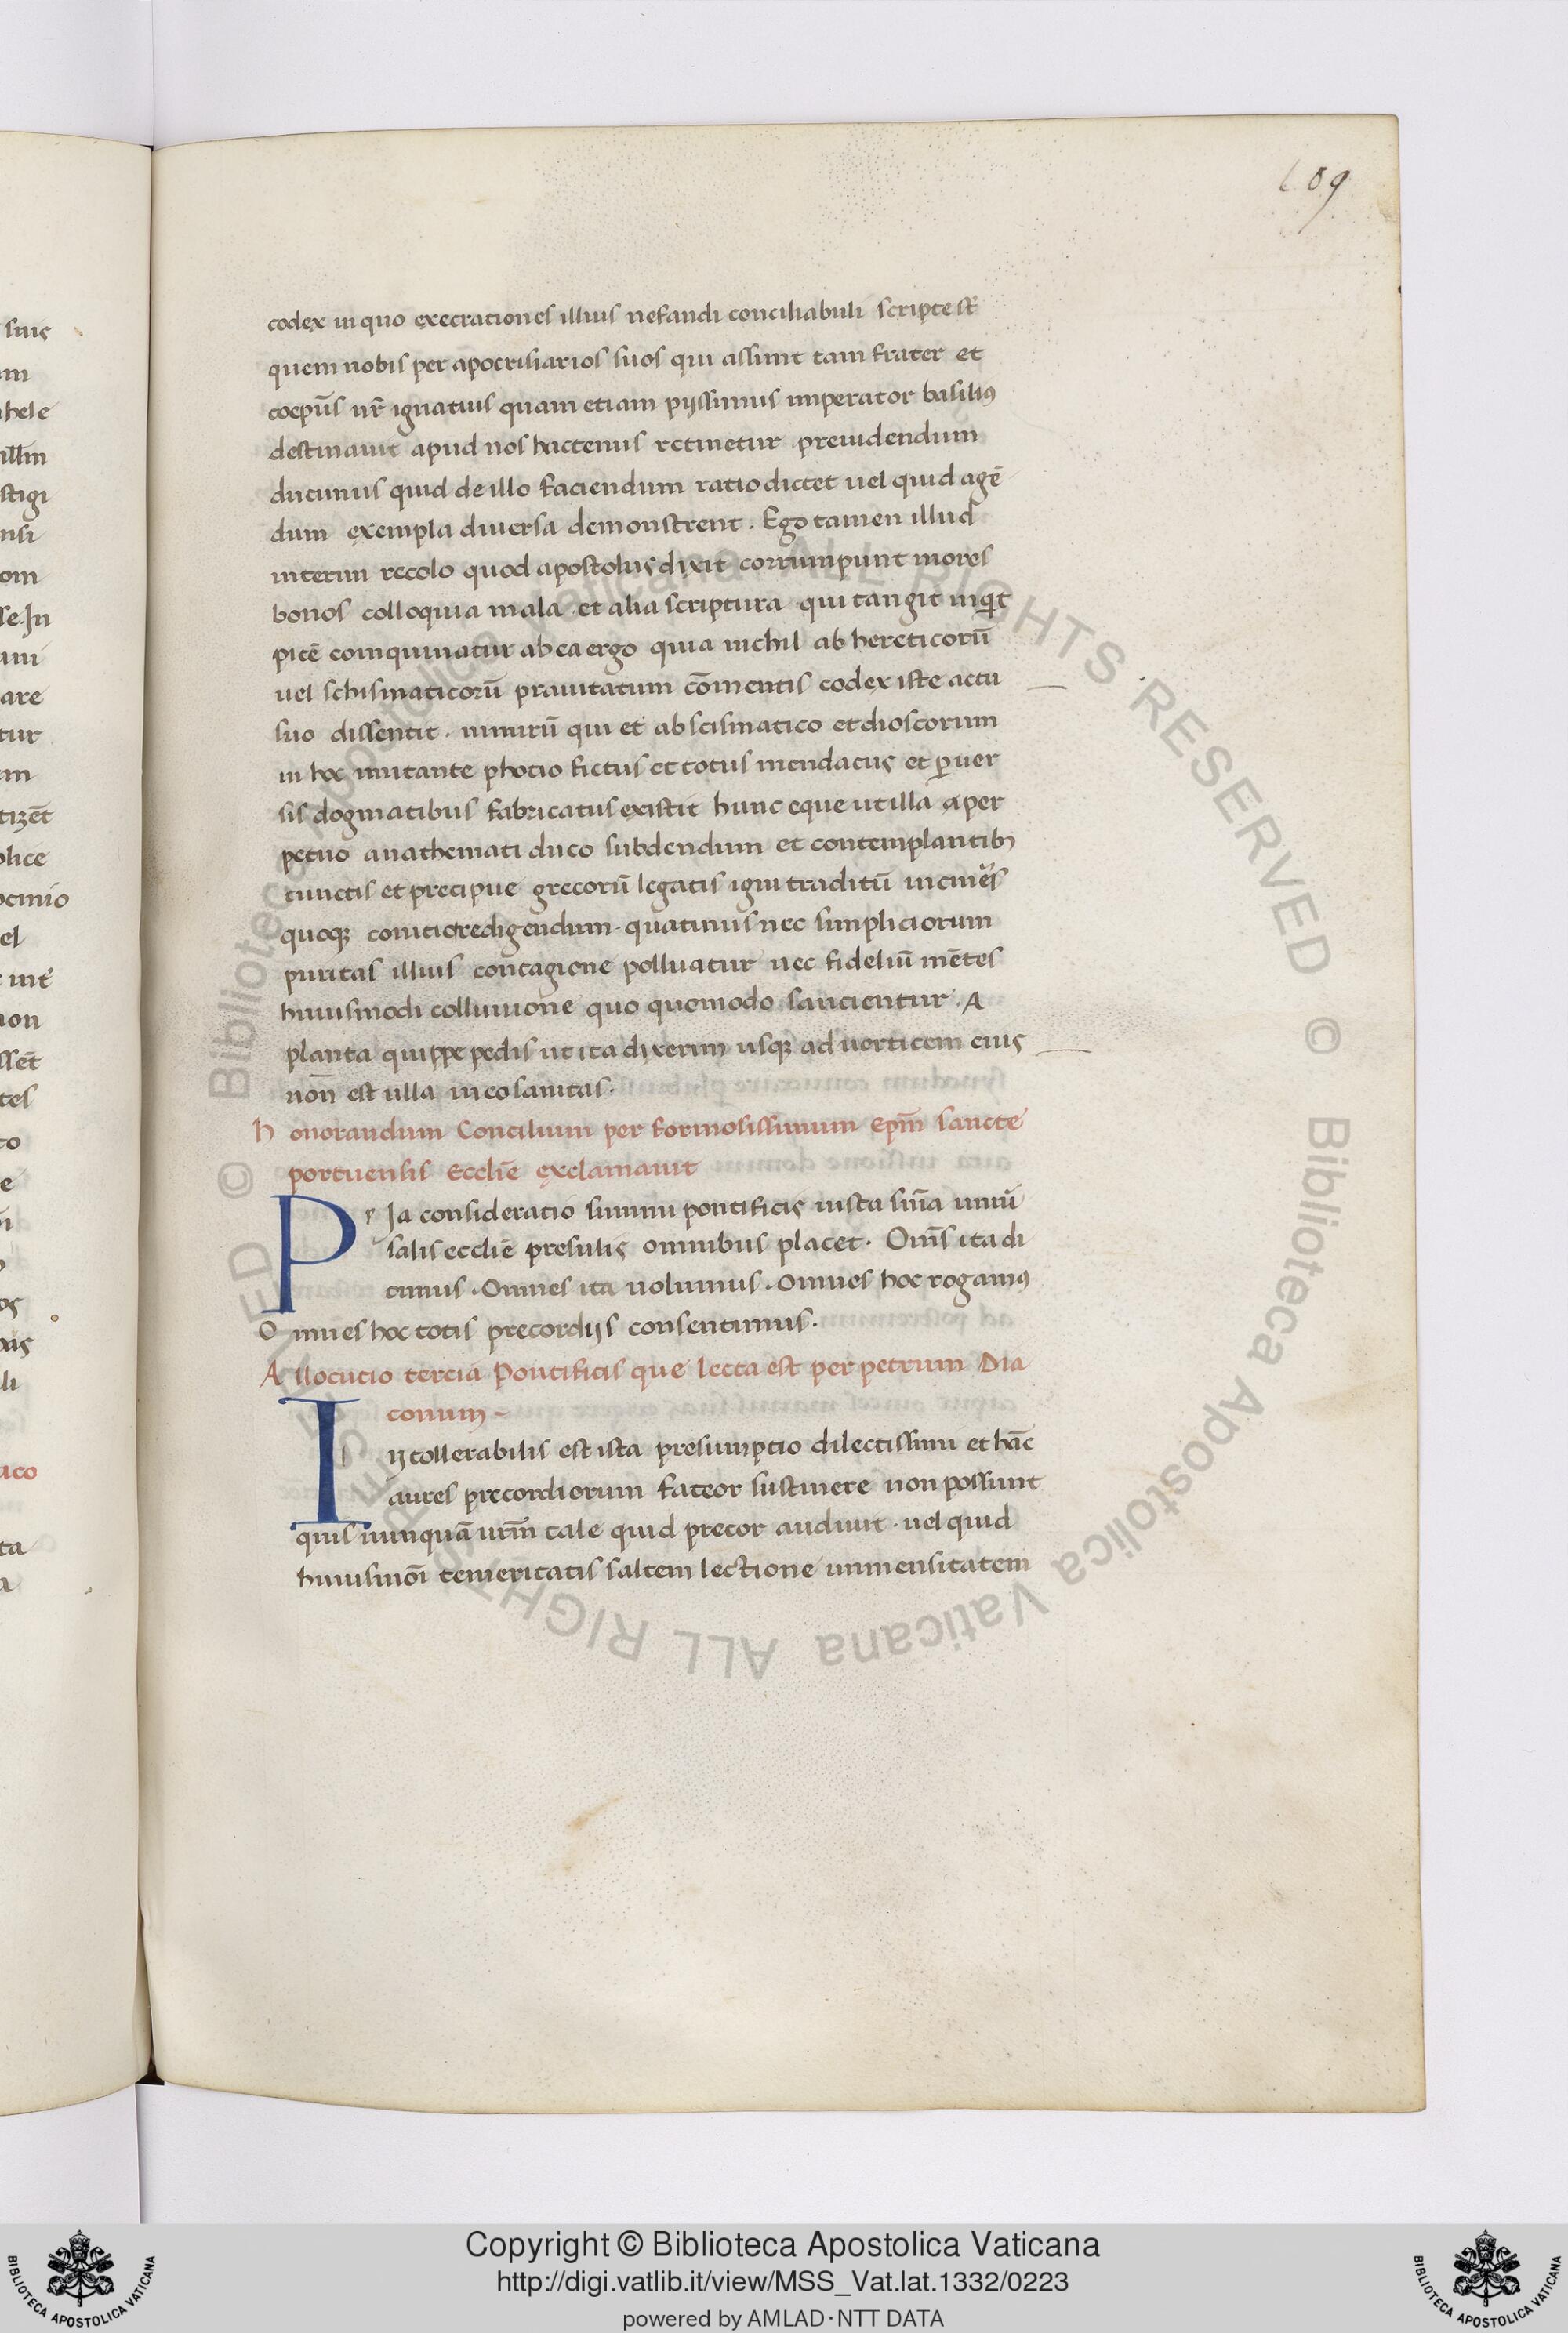 109
codex in quo execrationes illius nefandi conciliabuli scripte st̄
quem nobis per apocrisiarios suos qui assunt tam frater et
coep̄us nr̄ ignatius quam etiam pijssimus imperator basiliꝰ
destinauit apud nos hactenus retinetur preuidendum
ducimus quid de illo faciendum ratio dictet uel quid agē
dum exempla diuersa demonstrent. Ego tamen illud
interim recolo quod apostolus dixit corrumpunt mores
bonos colloquia mala et alia scriptura qui tangit inqt
picē coinquinatur ab ea ergo quia nichil ab hereticorū
uel schismaticorū prauitatum cōmentis codex iste actu
suo dissentit. nimirū qui et ab scismatico et dioscorum
in hoc imitante photio fictus et totus mendacijs et ꝑuer
sis dogmatibus fabricatus existit hunc eque ut illā aper
petuo anathemati duco subdendum et contemplantibꝫ
cunctis et precipue grecorū legatis igni traditū in cineres
quoqꝫ conuictio redigendum. quatinus nec simpliciorum
puritas illius contagione polluatur nec fideliū mētes
huiusmodi colluuione quo quomodo saucientur. A
planta quippe pedis ut ita dixerim usqꝫ ad uerticem eius
nōn est ulla in eo sanitas.
honorandum Concilium per formosissimum Epm̄ sancte
portuensis Ecclīe exclamauit
P r Ja consideratio summi pontificis iusta sn̄ia uniū
salis ecclīe presulis omnibus placet. Omn̄s ita di
cimus. Omnes ita uolumus. Omnes hoc rogamꝰ
Omnes hoc totis precordijs consentimus.
Allocutio tercia Pontificis que lecta est per petrum Dia
conum
I ijtollerabilis est ista presumptio dilectissimi et hāc
aures precordiorum fateor sustinere non possunt
quis nunquā urm̄ tale quid precor audiuit. uel quid
huiusmōi temeritatis saltem lectione immensitatem
Copyright © Biblioteca Apostolica Vaticana
http://digi.vatlib.it/view/MSS_Vat.lat.1332/0223
powered by AMLAD·NTT DATA